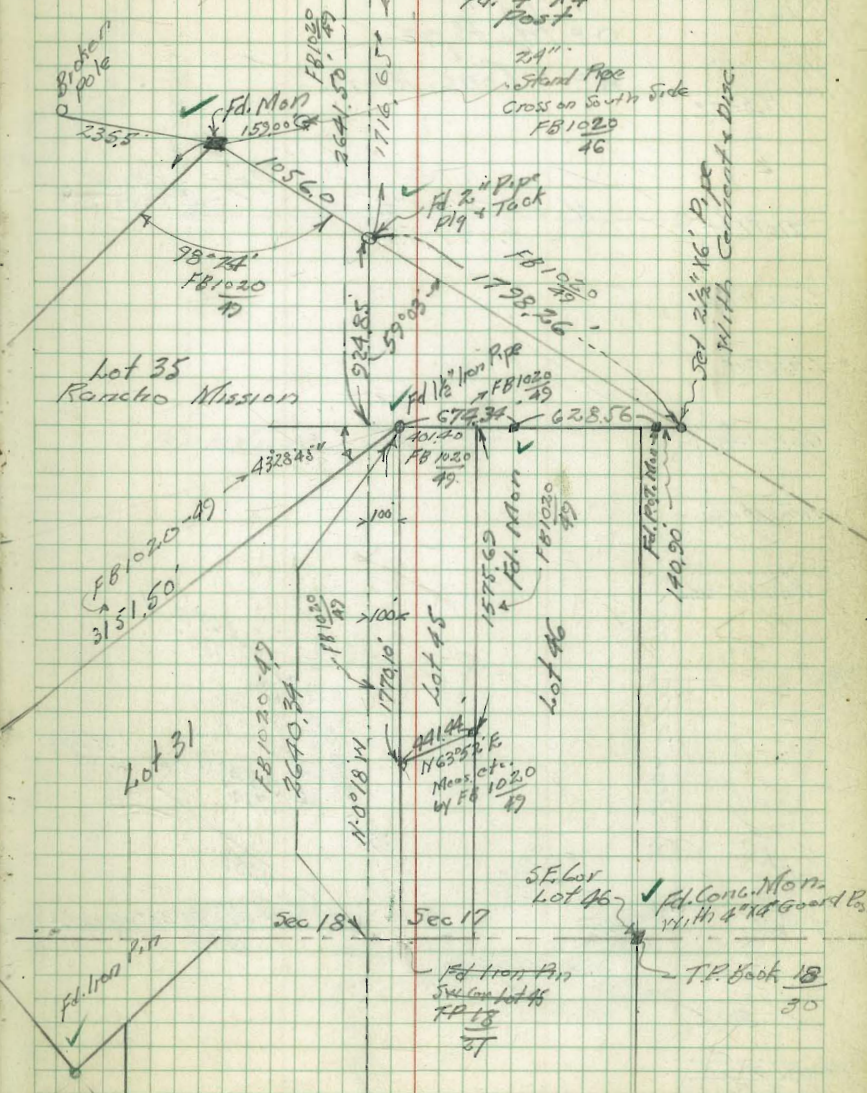 Post
24"
Stand Pipe
Cross on South Side
FB1020
46
Broken
Pole
235.5
Fd. Mon
159.00
FB1020
49
2641.50'
1716.65'
1056.0
Fd. 2" Pipe
Plg + Tack
98°24'
FB1020
49
FB1020
49
1798.26
Set 2½"X6' Pipe
With Cement & Disc.
924.85
59°03'
Lot 35
Rancho Mission
Fd 1½" Iron Pipe
FB1020
49
674.34
628.56
401.40
FB1020
49
43°28'45"
FB1020-49
3151.50'
100'
100'
Fd. Mon
FB1020
49
1575.69
Fd. Pot. Mon
140.90'
FB1020
49
1770.10'
Lot 45
Lot 46
FB1020-49
2640.34
Lot 31
N-0°18'W
441.44'
N63°52'E
Meas. etc.
by FB1020
49
S.E. Cor
Lot 46
Fd. Conc. Mon.
With 4"X4" Guard
Sec 18
Sec 17
Fd. Iron Pin
Fd Iron Pin
SW Cor Lot 45
T.P. 18
21
T.P. Book 18
30